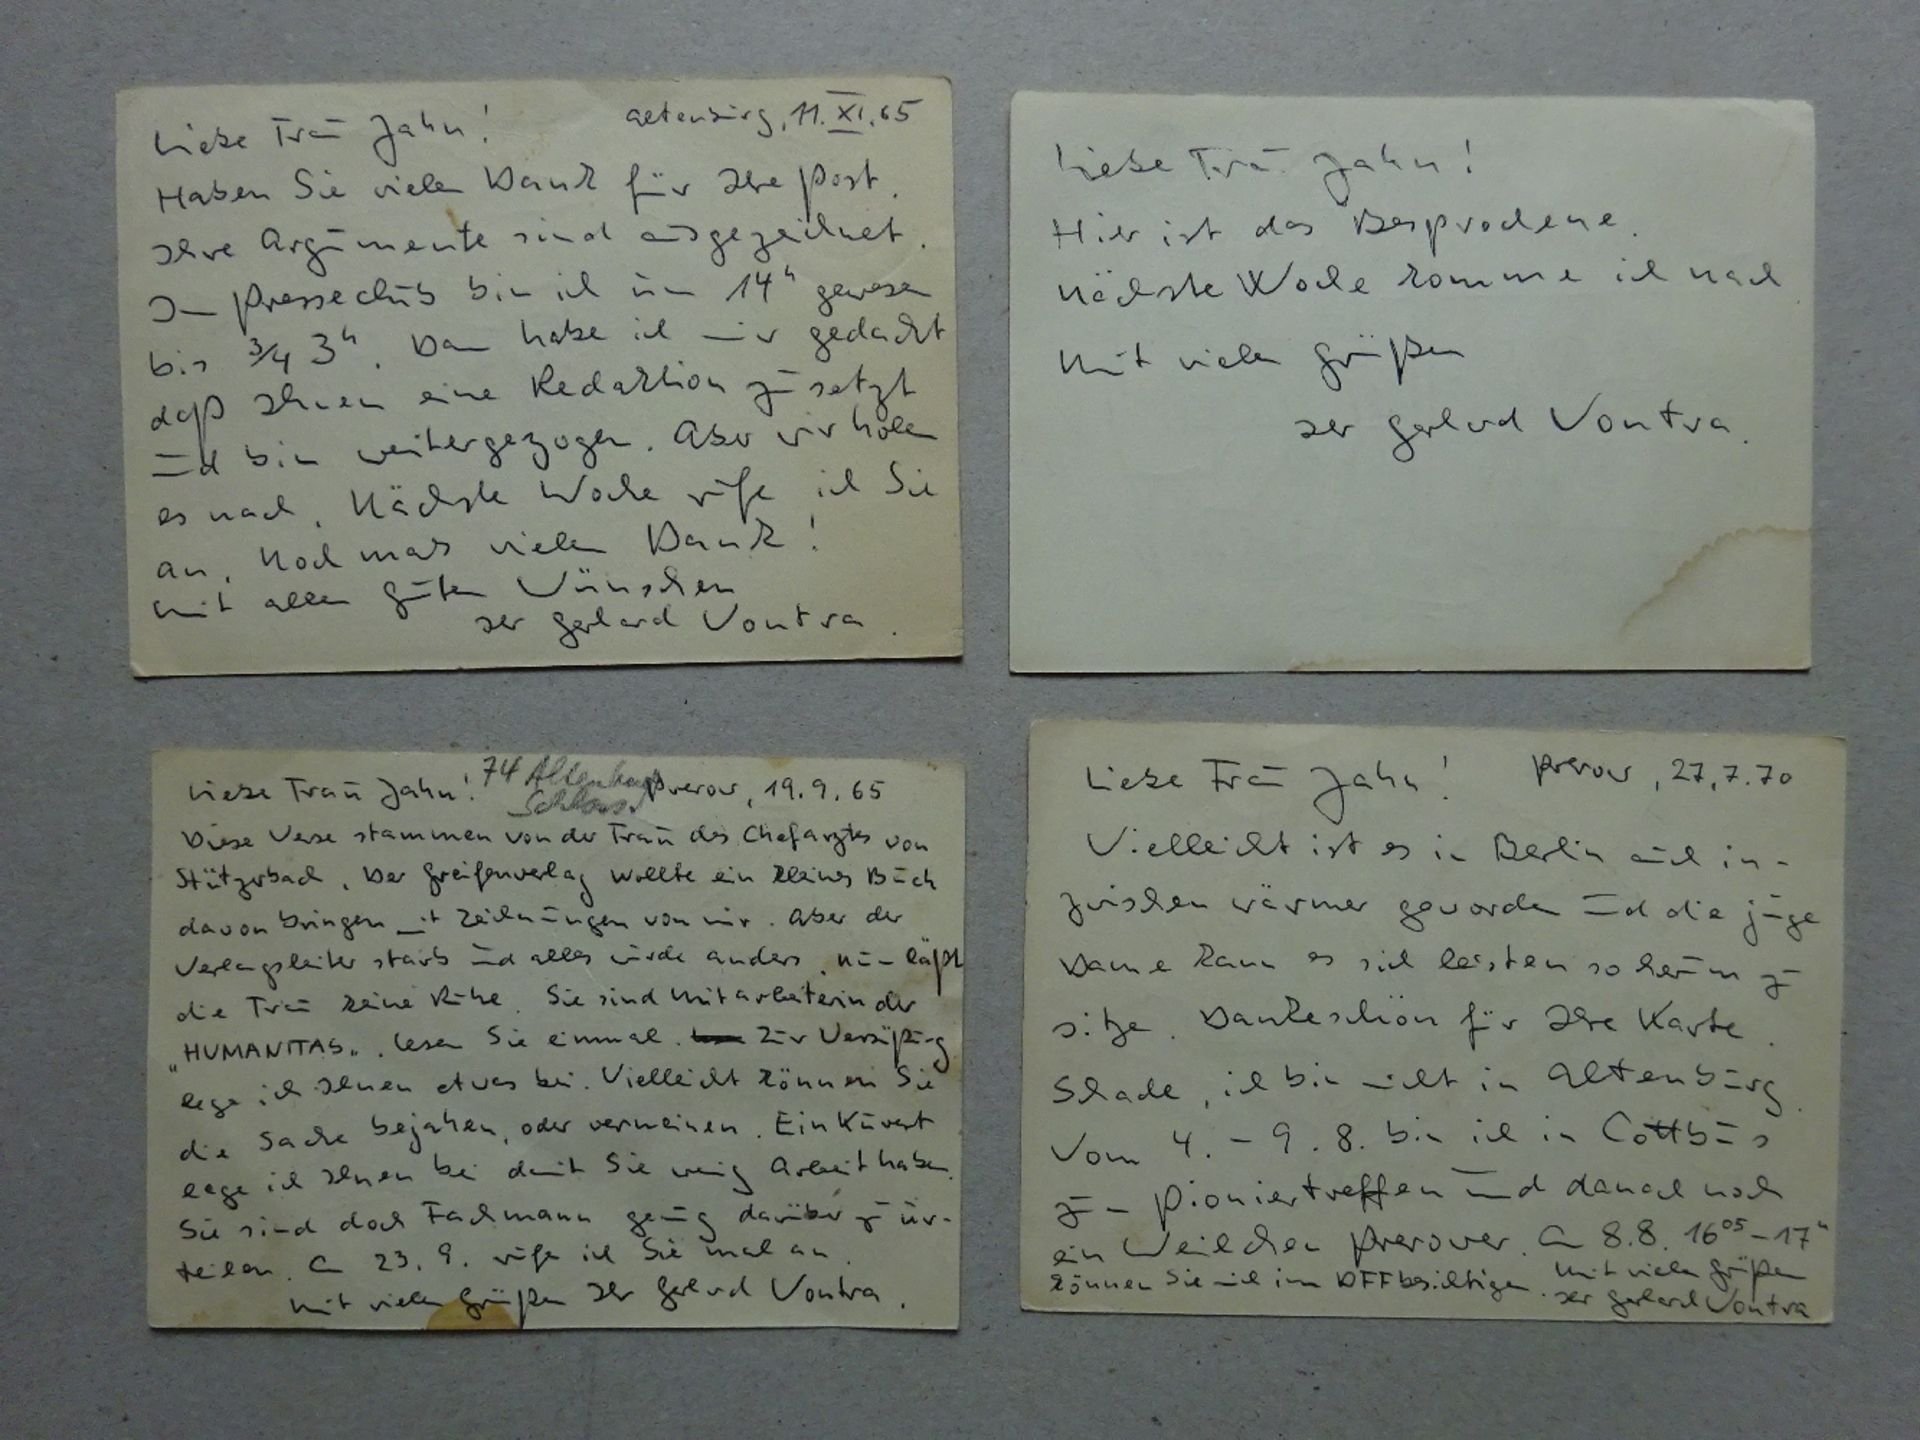 Liebe Frau Jahn! Altenburg, 11. XI. 65
Haben Sie vielen Dank für Ihre Post.
Ihre Argumente sind ausgezeichnet.
Im Presseclub bin ich um 14ʰ gewesen
bis ¾ 3ʰ. Dann habe ich mir gedacht
daß Ihnen eine Redaktion zusetzt
und bin weitergezogen. Aber wir holen
es nach. Nächste Woche rufe ich Sie
an. Noch mals vielen Dank!
Mit allen guten Wünschen
Ihr Gerhard Vontra.
Liebe Frau Jahn!
Hier ist das Besprochene.
Nächste Woche komme ich nach.
Mit vielen Grüßen
Ihr Gerhard Vontra.
Liebe Frau Jahn! 74 Altenburg Prerow, 19.9.65
Schloss
Diese Verse stammen von der Frau des Chefarztes von
Stützerbach. Der Greifenverlag wollte ein kleines Buch
davon bringen mit Zeichnungen von mir. Aber der
Verlagsleiter starb und alles wurde anders. Nun läßt
die Frau keine Ruhe. Sie sind Mitarbeiterin der
„HUMANITAS". Lesen Sie einmal. Zur Versüßung
lege ich Ihnen etwas bei. Vielleicht können Sie
die Sache bejahen, oder verneinen. Ein Kuvert
lege ich Ihnen bei damit Sie wenig Arbeit haben.
Sie sind doch Fachmann genug darüber zu ur-
teilen. Am 23.9. rufe ich Sie mal an.
Mit vielen Grüßen Ihr Gerhard Vontra.
Liebe Frau Jahn! Prerow, 27.7.70
Vielleicht ist es in Berlin auch in-
zwischen wärmer geworden und die junge
Dame kann es sich leisten so herum zu
sitzen. Dankeschön für Ihre Karte.
Schade, ich bin nicht in Altenburg.
Vom 4. - 9.8. bin ich in Cottbus
zum Pioniertreffen und danach noch
ein Weilchen Prerower. Am 8.8. 16⁰⁵-17ʰ
können Sie mich im DFF besichtigen. Mit vielen Grüßen
Ihr Gerhard Vontra